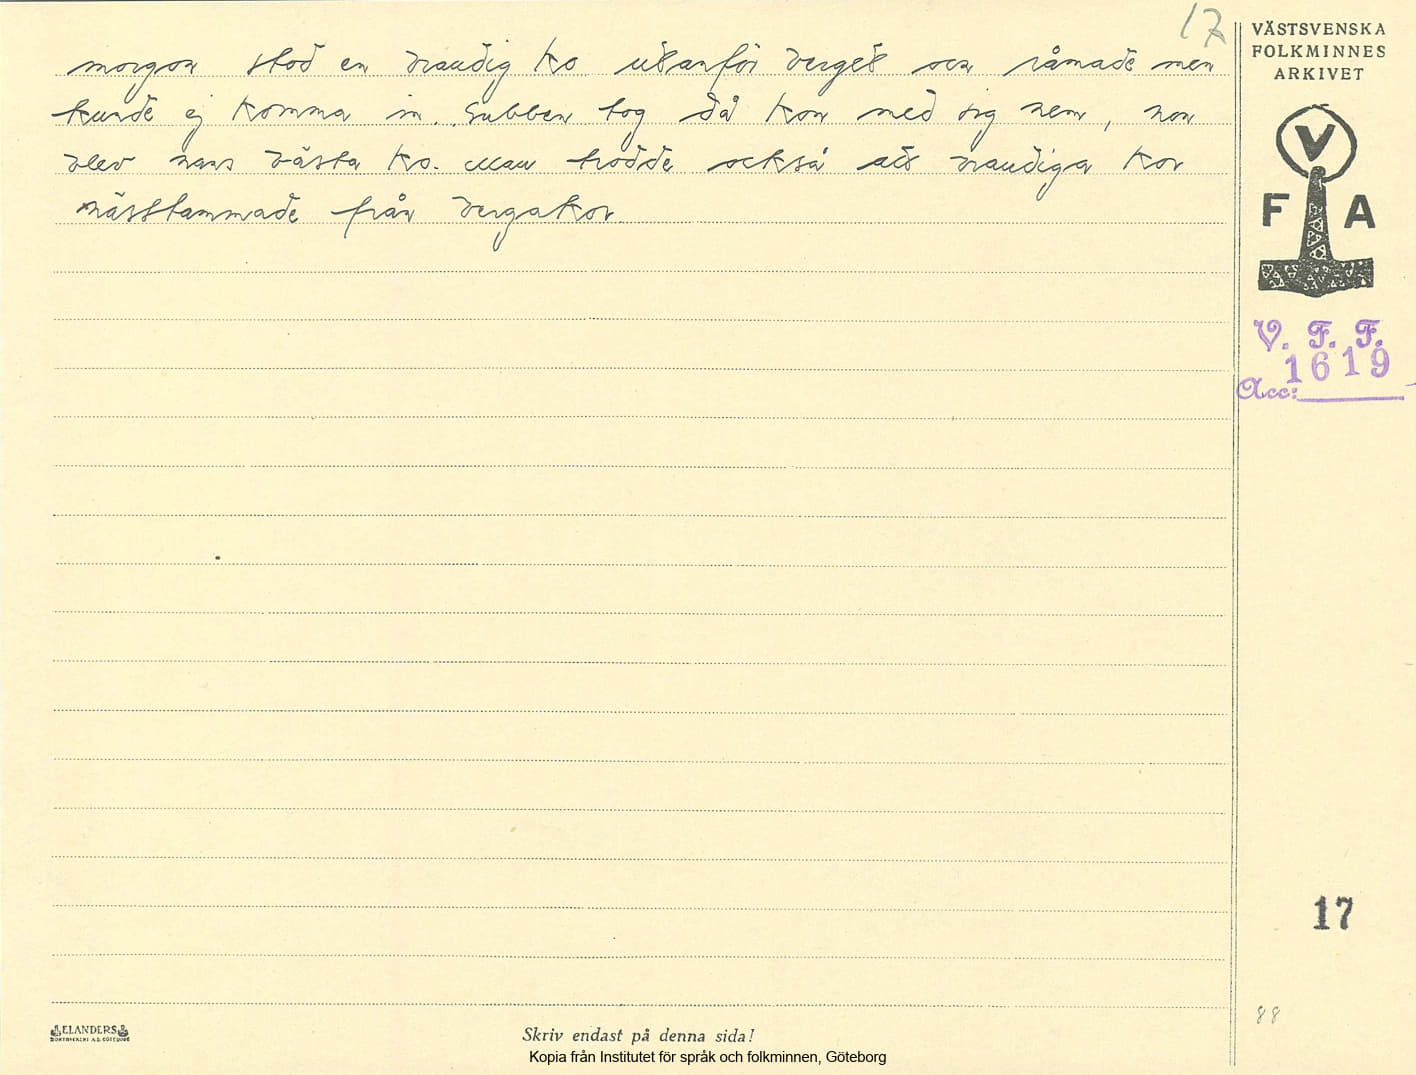 17
VÄSTSVENSKA
FOLKMINNES
ARKIVET
morgon stod en brandig ko utanför berget och råmade men
kunde ej komma in. Gubben tog då kon med sig hem, hon
blev hans bästa ko. Man trodde också att brandiga kor
härstammade från bergakor.
V
F A
V. F. F.
1619
Acc:
17
88
ELANDERS
BOKTRYCKERI A.B. GÖTEBORG
Skriv endast på denna sida!
Kopia från Institutet för språk och folkminnen, Göteborg